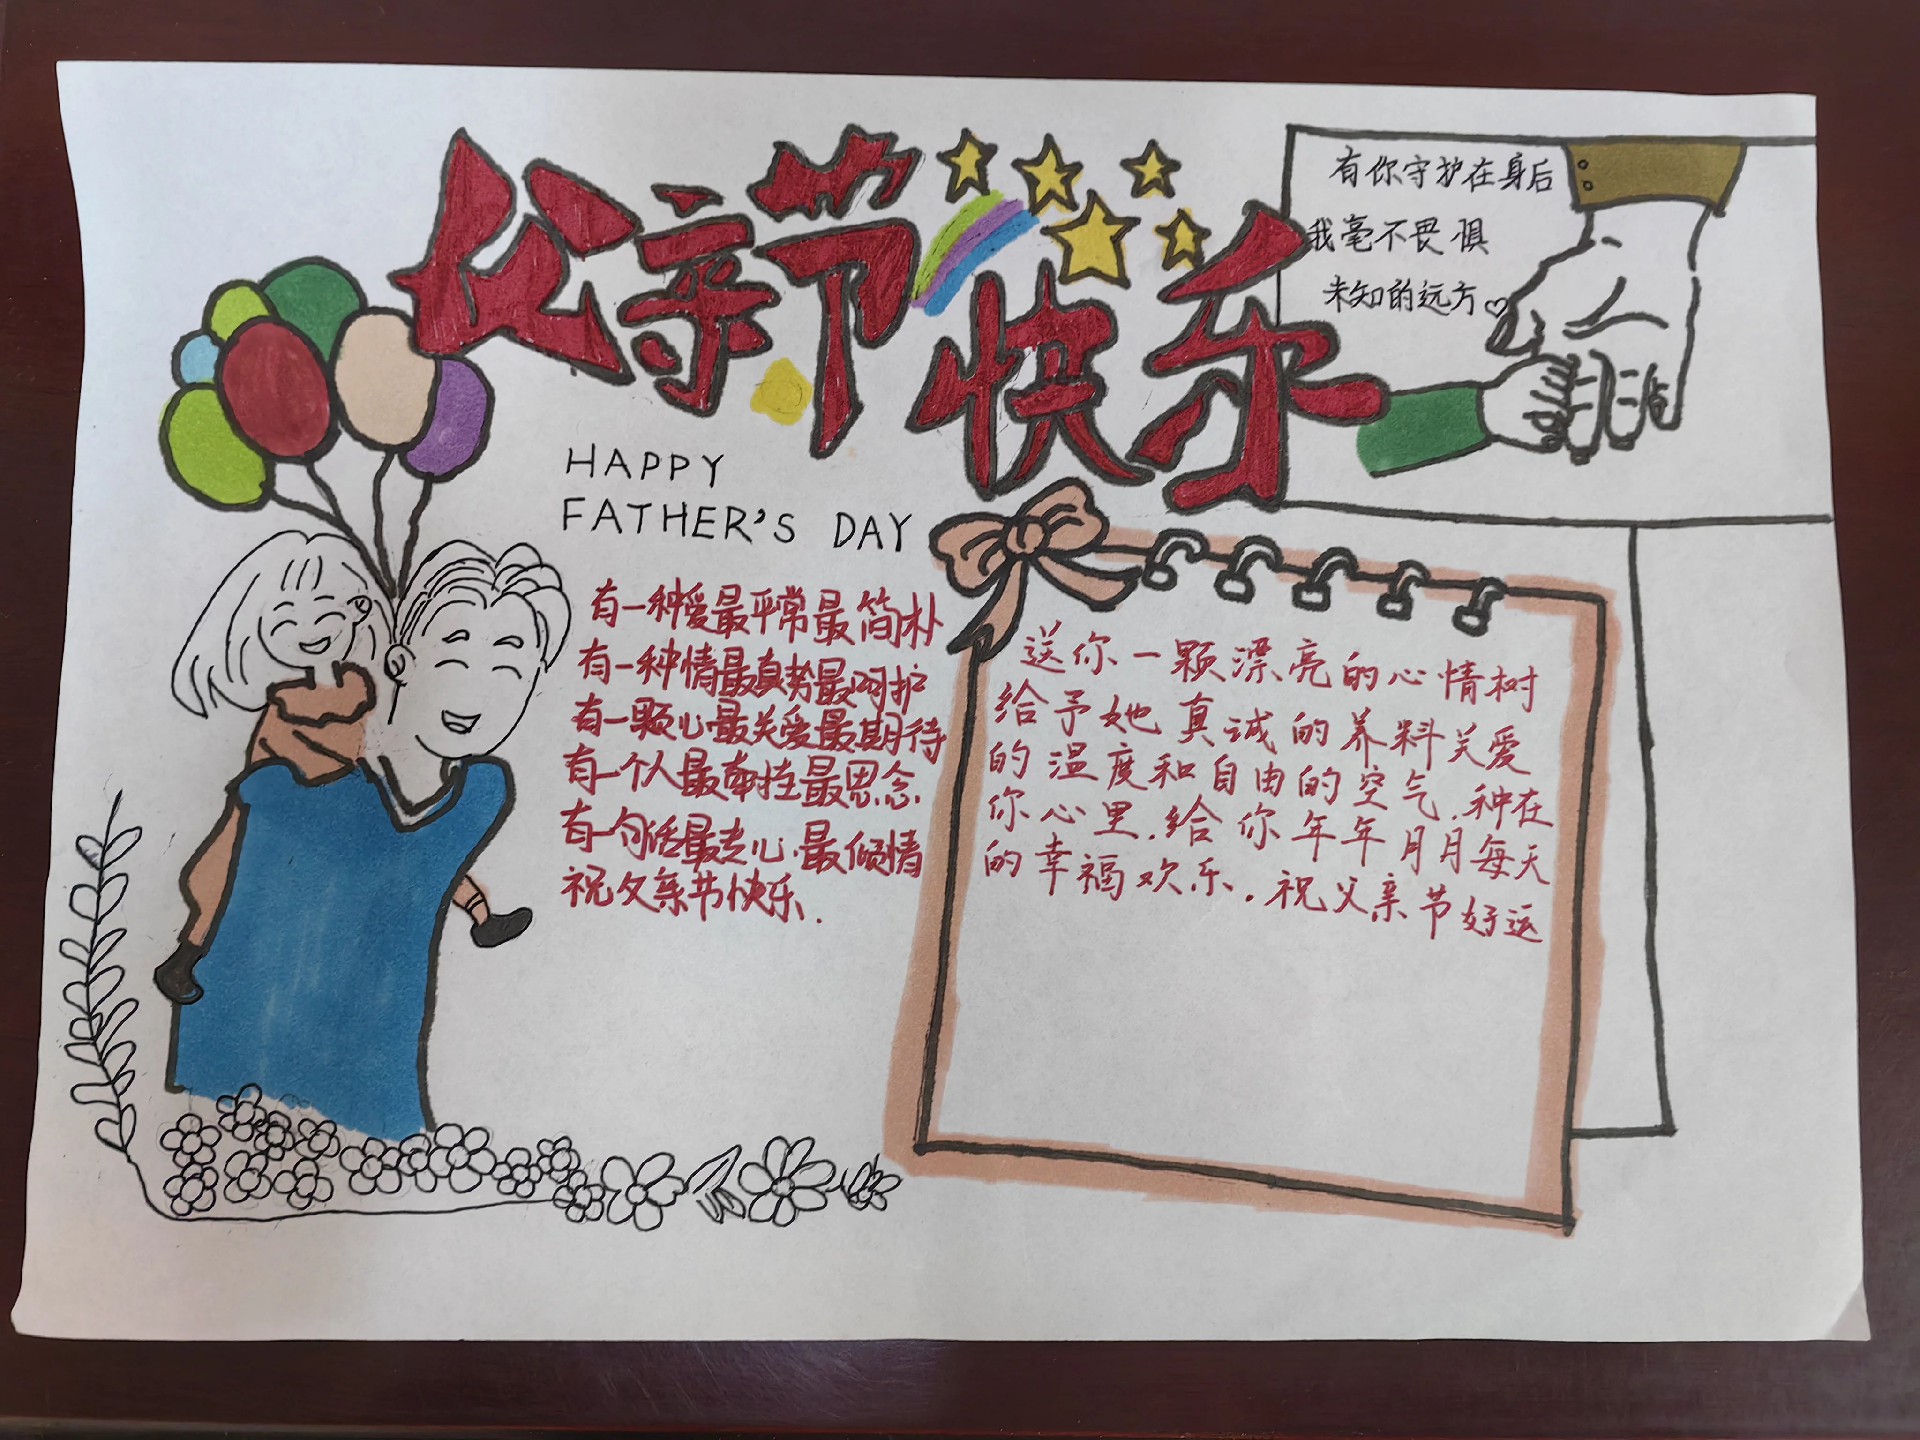 父亲节
快乐
有你守护在身后
我毫不畏惧
未知的远方♡
HAPPY
FATHER'S DAY
有一种爱最平常最简朴
有一种情最真势最呵护
有一颗心最关爱最期待
有一个人最牵挂最思念
有一句话最走心.最倾情
祝父亲节快乐.
送你一颗漂亮的心情树
给予她真诚的养料关爱
的温度和自由的空气.种在
你心里.给你年年月月每天
的幸福欢乐.祝父亲节好运